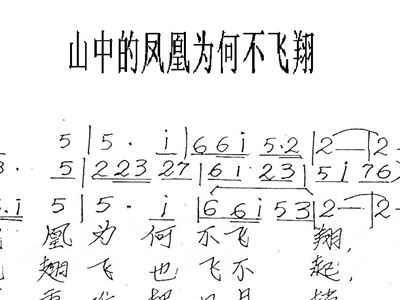 山中的凤凰为何不飞翔
5 | 5 · i | 6 6 i 5·2 | 2 — | 2 —
3· 5 | 2 23 27 | 61 23 | 5 i 76
·i 5 | 5 · i | 6 6 i 53 | 2 — | 2 —
凰 为 何 不 飞 翔,
翅 飞 也 飞 不 起,